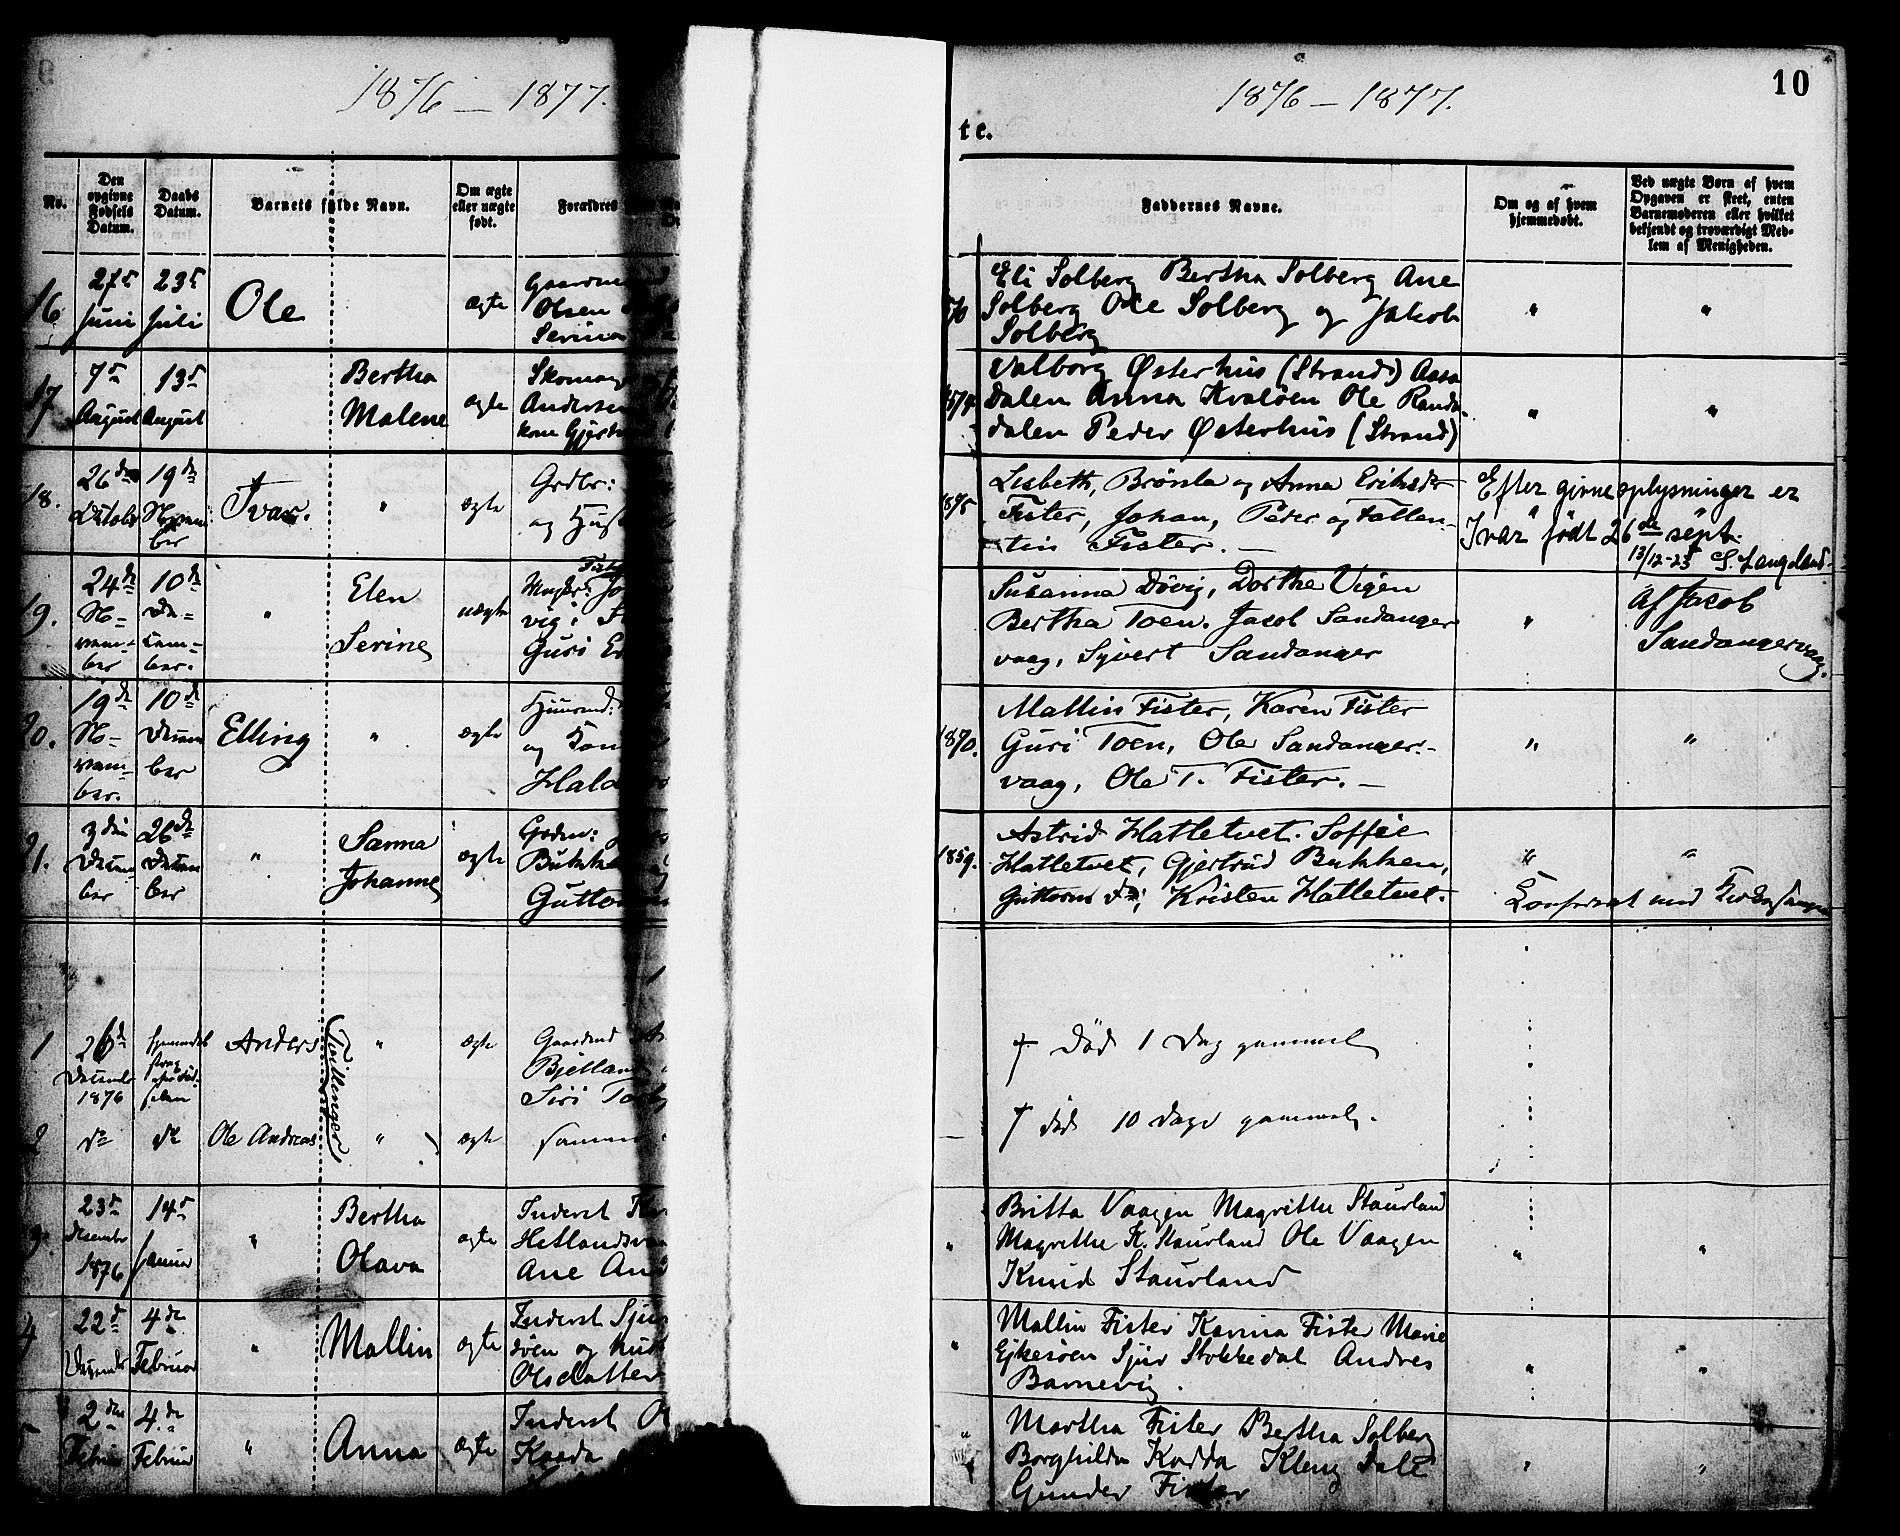 1876 — 1877.
No.
Den opgivne Fødsels Datum.
Daabs Datum.
Barnets fulde Navn.
Om ægte eller uægte født.
Forældres
16
27de Juni
23de Juli
Ole
ægte
Gaardm
Olsen
Serina
17
7de August
13de August
Bertha
Malene
ægte
Skomag
Andersen
kone Gjert
18.
26de Octobr
19de Novem
ber
Ivar.
"
ægte
Grdbr:
og Hust
19.
24de No-
vem-
ber
10de De-
cem-
ber.
"
Elen
Serine
uægte
vig i
Guri
20.
19de No-
vem-
ber.
10de Decem
ber
Elling
"
ægte
og Kon
Hald
21.
3die Decem
ber
26de Decem
ber
"
Sanna
Johanne
ægte
Bukke
Guttor
1
26de Decembr
1876
Anders
Tvillinger
"
ægte
Gaardmd
Bjelland
Siri
2
do
do
Ole Andreas
"
ægte
samme
3
23de Desembr
1876
14de Januar
"
Bertha
Olava
ægte
Inderst
Hetlandsvaa
Ane And
4
22de Decembr
4de Februar
"
Mallin
ægte
Inderst Sjur
døen og hust
Olsdatter
5
2den Februar
4de Februar
"
Anna
ægte
Inderst
Kaada
1876 — 1877.
10
te.
Faddernes Navne.
Om og af hvem hjemmedøbt.
Ved uægte Born af hvem
Opgaven er skeet, enten
Barnemoderen eller hvilket
bekjendt og troværdigt Med-
lem af Menigheden.
Eli Solberg Bertha Solberg Ane
Solberg Ole Solberg og Jakob
Solberg
"
"
Valborg Østerhus (Strand) Aasa
Dalen Anna Kvaløen Ole Randa
dalen Peder Østerhus (Strand)
"
"
Lisbeth, Brønla og Anna Eriksdr
Fister, Johan, Peder og Fallen-
tin Fister. —
Efter givne oplysninger er
Ivar født 26de sept.
13/12-23 S. Langeland.
Susanna Døvig, Dorthe Vigen
Bertha Toen. Jacob Sandanger
vaag, Syvert Sandanger
"
Af Jacob
Sandangervaag.
1870.
Mallin Fister, Karen Fister
Guri Toen, Ole Sandanger-
vaag, Ole T. Fister. —
"
"
1859.
Astrid Hatletvet. Soffie
Hatletvet, Gjertrud Bukken,
Guttorm do; Kristen Hatletvet.
"
"
Conferert med Kirkesanger
† Død 1 Dag gammel
† død 10 Dage gammel.
"
Britta Vaagen Magrithe Staurland
Magrethe K. Staurland Ole Vaagen
Knud Staurland
"
"
"
Mallin Fister Karina Fister Marie
Ejkesøen Sjur Stokkedal Andres
Barnevig.
"
"
"
Martha Fister Bertha Solberg
Borghilda Kodda Kleng Dale
Gunder Fister
"
"